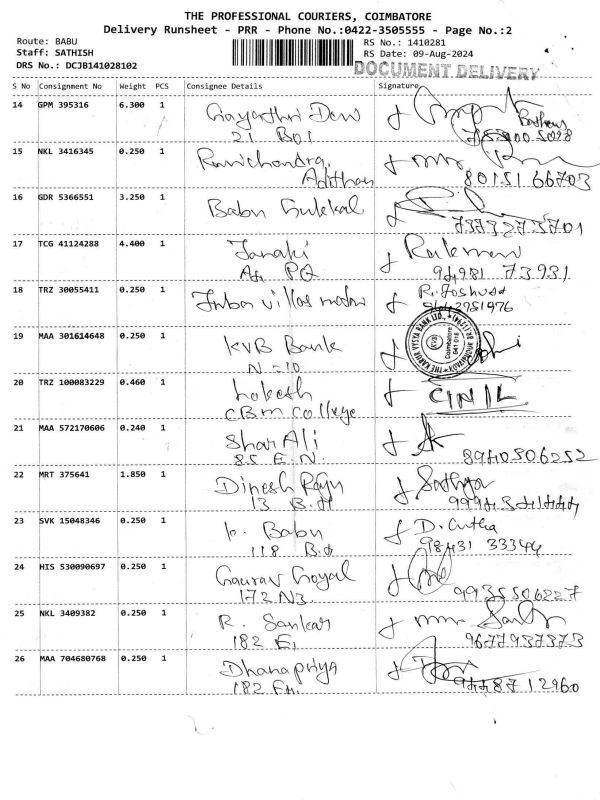 THE PROFESSIONAL COURIERS, COIMBATORE
Delivery Runsheet - PRR - Phone No.:0422-3505555 - Page No.:2
Route: BABU
Staff: SATHISH
DRS No.: DCJB141028102
RS No.: 1410281
RS Date: 09-Aug-2024
DOCUMENT DELIVERY
S No Consignment No Weight PCS Consignee Details Signature
14 GPM 395316 6.300 1 Gayathri Devi
21 B01
15 NKL 3416345 0.250 1 Ravichandra
Adithan 80151 66703
16 GDR 5366551 3.250 1 Babu
7373273701
17 TCG 41124288 4.400 1 Janaki
PQ 94981 73931
18 TRZ 30055411 0.250 1 villas R. Joshua
9442981976
19 MAA 301614648 0.250 1 KVB Bank
N-10
THE KARUR VYSYA BANK LTD.,
KVB
Coimbatore
641 018
20 TRZ 100083229 0.460 1 Lokesh
CBM College
21 MAA 572170606 0.240 1 Shar Ali
85 E.N. 8940506252
22 MRT 375641 1.850 1 Dinesh Raju Sathya
13
23 SVK 15048346 0.250 1 K. Babu
118 98431 33344
24 HIS 530090697 0.250 1 Gaurav Goyal
172 N3 9935506227
25 NKL 3409382 0.250 1 R. Sankar
182 9677937373
26 MAA 704680768 0.250 1 Dhanapriya
182 9448712960